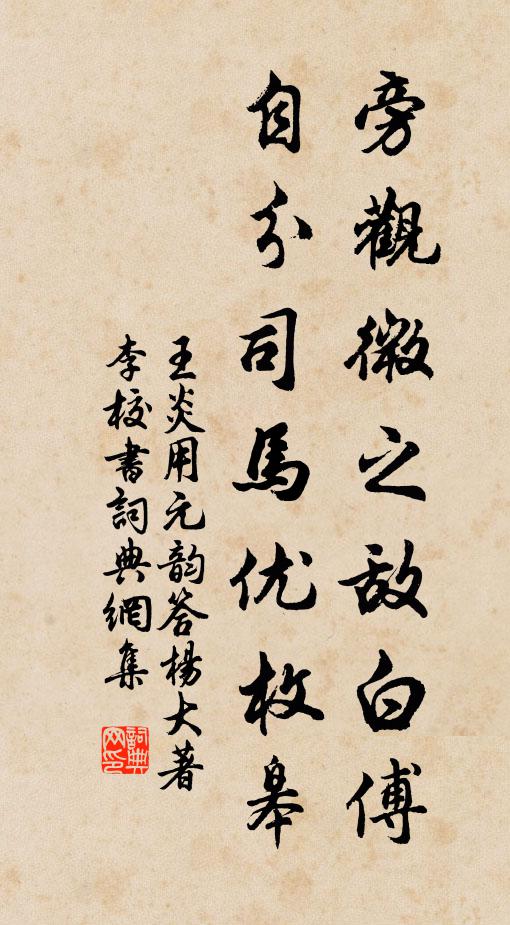 旁觀微之敌白傅
自分司馬优枚皋
王炎用元韵答楊大著
李校書詞典網集
詞典网印